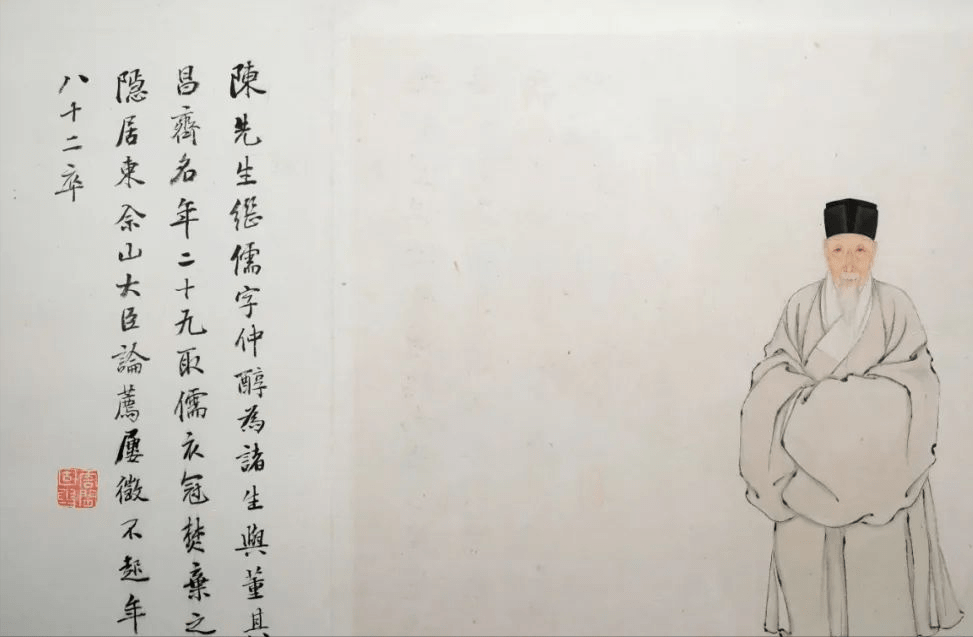 陳先生繼儒字仲醇為諸生與董其
昌齊名年二十九取儒衣冠焚棄之
隱居東佘山大臣論薦屢徵不起年
八十二卒